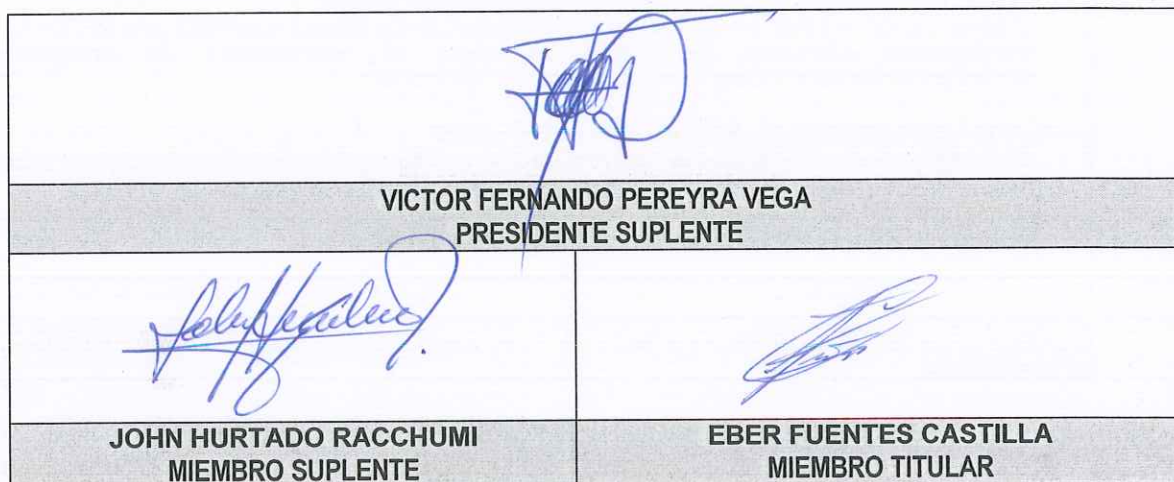 VICTOR FERNANDO PEREYRA VEGA
PRESIDENTE SUPLENTE
JOHN HURTADO RACCHUMI
MIEMBRO SUPLENTE
EBER FUENTES CASTILLA
MIEMBRO TITULAR